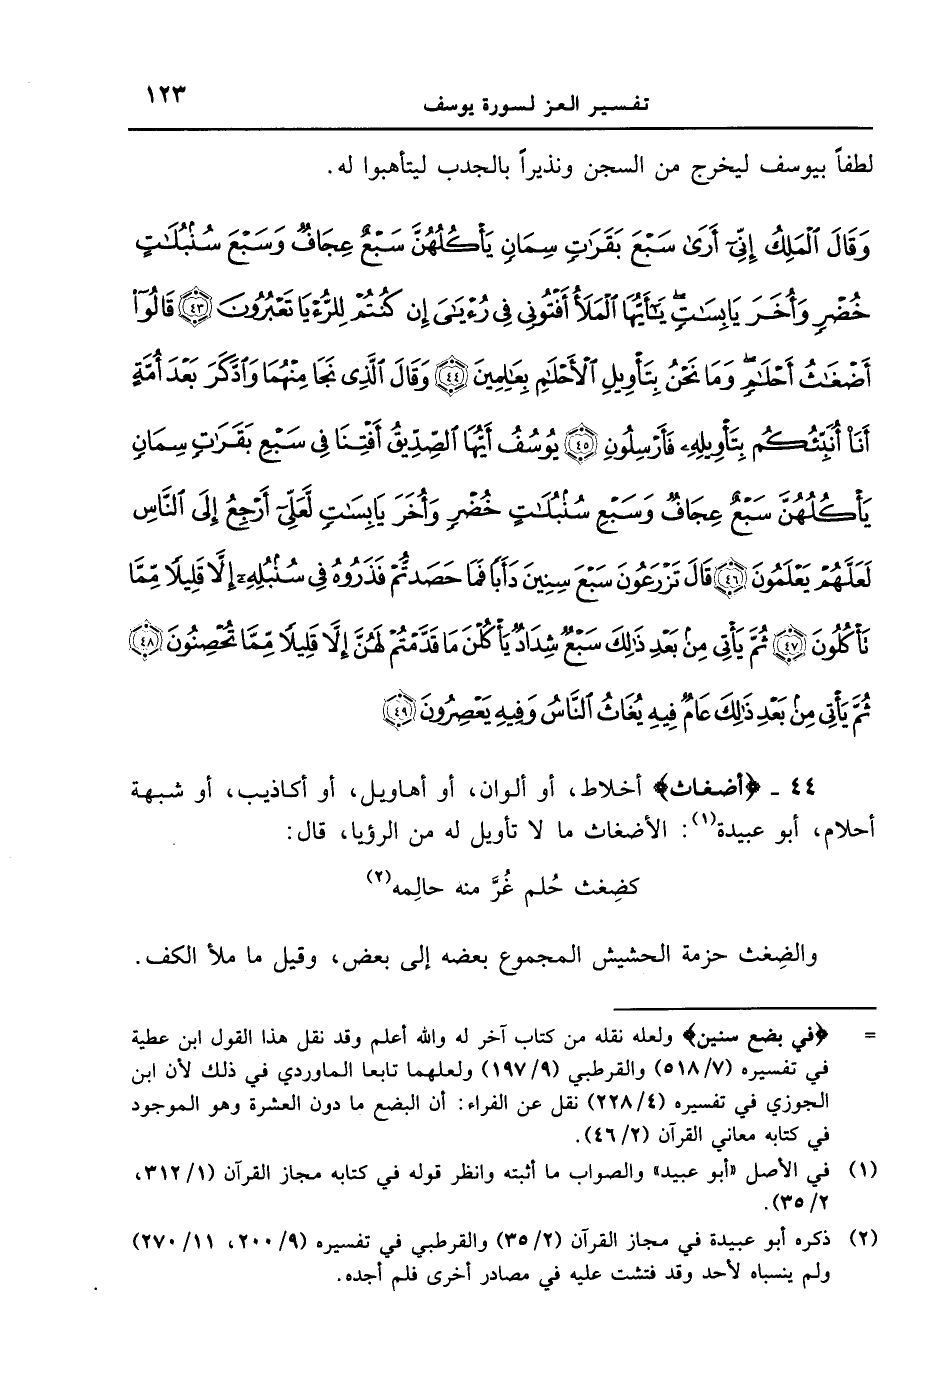 تفسير العز لسورة يوسف ١٢٣
لطفاً بيوسف ليخرج من السجن ونذيراً بالجدب ليتأهبوا له.
وَقَالَ ٱلْمَلِكُ إِنِّىٓ أَرَىٰ سَبْعَ بَقَرَٰتٍ سِمَانٍ يَأْكُلُهُنَّ سَبْعٌ عِجَافٌ وَسَبْعَ سُنۢبُلَٰتٍ
خُضْرٍ وَأُخَرَ يَابِسَٰتٍ ۖ يَٰٓأَيُّهَا ٱلْمَلَأُ أَفْتُونِى فِى رُءْيَٰىَ إِن كُنتُمْ لِلرُّءْيَا تَعْبُرُونَ ﴿٤٣﴾ قَالُوٓا۟
أَضْغَٰثُ أَحْلَٰمٍ ۖ وَمَا نَحْنُ بِتَأْوِيلِ ٱلْأَحْلَٰمِ بِعَٰلِمِينَ ﴿٤٤﴾ وَقَالَ ٱلَّذِى نَجَا مِنْهُمَا وَٱدَّكَرَ بَعْدَ أُمَّةٍ
أَنَا۠ أُنَبِّئُكُم بِتَأْوِيلِهِۦ فَأَرْسِلُونِ ﴿٤٥﴾ يُوسُفُ أَيُّهَا ٱلصِّدِّيقُ أَفْتِنَا فِى سَبْعِ بَقَرَٰتٍ سِمَانٍ
يَأْكُلُهُنَّ سَبْعٌ عِجَافٌ وَسَبْعِ سُنۢبُلَٰتٍ خُضْرٍ وَأُخَرَ يَابِسَٰتٍ لَّعَلِّىٓ أَرْجِعُ إِلَى ٱلنَّاسِ
لَعَلَّهُمْ يَعْلَمُونَ ﴿٤٦﴾ قَالَ تَزْرَعُونَ سَبْعَ سِنِينَ دَأَبًا فَمَا حَصَدتُّمْ فَذَرُوهُ فِى سُنۢبُلِهِۦٓ إِلَّا قَلِيلًا مِّمَّا
تَأْكُلُونَ ﴿٤٧﴾ ثُمَّ يَأْتِى مِنۢ بَعْدِ ذَٰلِكَ سَبْعٌ شِدَادٌ يَأْكُلْنَ مَا قَدَّمْتُمْ لَهُنَّ إِلَّا قَلِيلًا مِّمَّا تُحْصِنُونَ ﴿٤٨﴾
ثُمَّ يَأْتِى مِنۢ بَعْدِ ذَٰلِكَ عَامٌ فِيهِ يُغَاثُ ٱلنَّاسُ وَفِيهِ يَعْصِرُونَ ﴿٤٩﴾
٤٤ - ﴿أضغاث﴾ أخلاط، أو ألوان، أو أهاويل، أو أكاذيب، أو شبهة
أحلام، أبو عبيدة(١): الأضغاث ما لا تأويل له من الرؤيا، قال:
كضِغث حُلم غُرَّ منه حالِمه(٢)
والضِغث حزمة الحشيش المجموع بعضه إلى بعض، وقيل ما ملأ الكف.
= ﴿في بضع سنين﴾ ولعله نقله من كتاب آخر له والله أعلم وقد نقل هذا القول ابن عطية
في تفسيره (٥١٨/٧) والقرطبي (١٩٧/٩) ولعلهما تابعا الماوردي في ذلك لأن ابن
الجوزي في تفسيره (٢٢٨/٤) نقل عن الفراء: أن البضع ما دون العشرة وهو الموجود
في كتابه معاني القرآن (٤٦/٢).
(١) في الأصل «أبو عبيد» والصواب ما أثبته وانظر قوله في كتابه مجاز القرآن (٣١٢/١،
٣٥/٢).
(٢) ذكره أبو عبيدة في مجاز القرآن (٣٥/٢) والقرطبي في تفسيره (٢٠٠/٩، ٢٧٠/١١)
ولم ينسباه لأحد وقد فتشت عليه في مصادر أخرى فلم أجده.